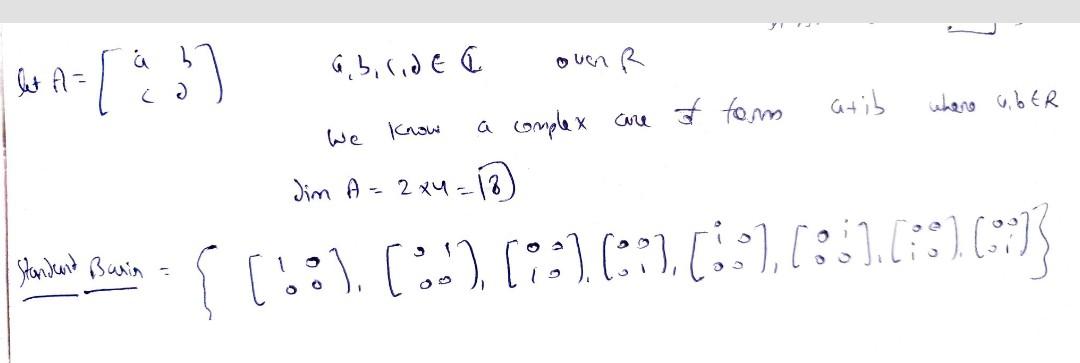 let A = [ a b ; c d ]   a, b, c, d ∈ ℂ   over R
We know a complex are of form a+ib where a, b ∈ R
dim A = 2 x 4 = 8
Standard Basis = { [ 1 0 ; 0 0 ], [ 0 1 ; 0 0 ], [ 0 0 ; 1 0 ], [ 0 0 ; 0 1 ], [ i 0 ; 0 0 ], [ 0 i ; 0 0 ], [ 0 0 ; i 0 ], [ 0 0 ; 0 i ] }